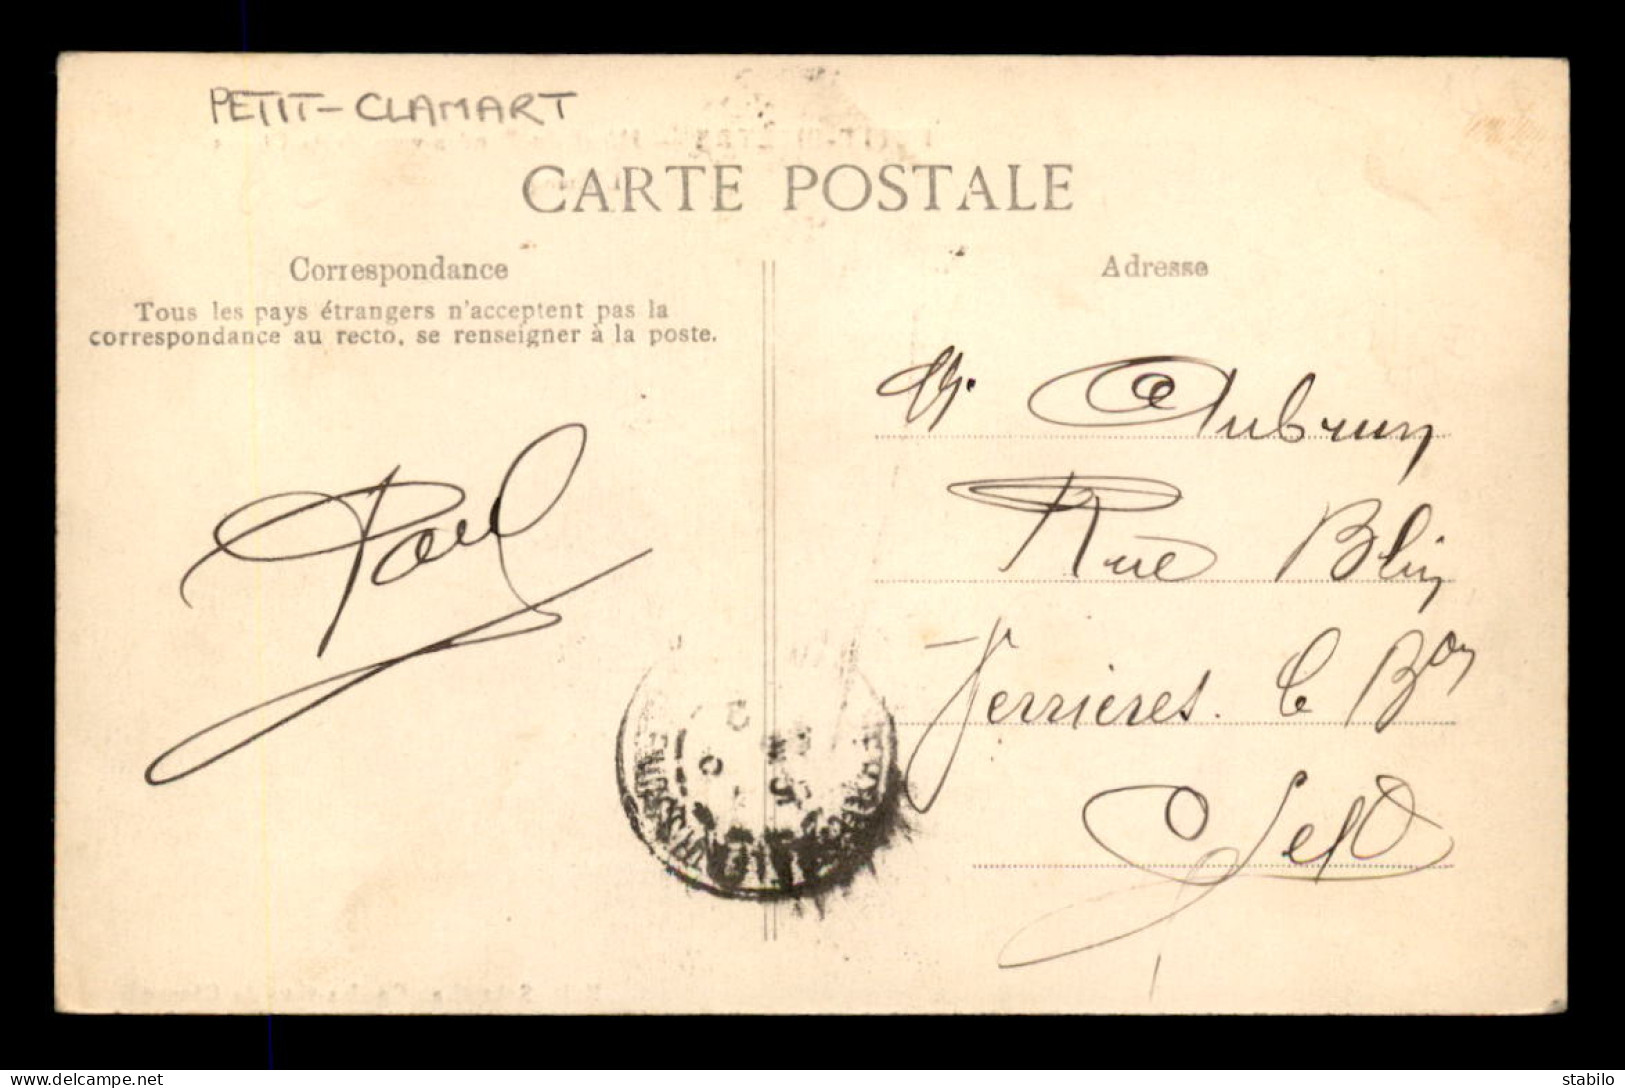 PETIT-CLAMART
CARTE POSTALE
Correspondance
Tous les pays étrangers n'acceptent pas la
correspondance au recto, se renseigner à la poste.
Paul
Adresse
M. Aubrun
Rue Blin
Verrieres. le Bon
S et O
delcampe.net
stabilo